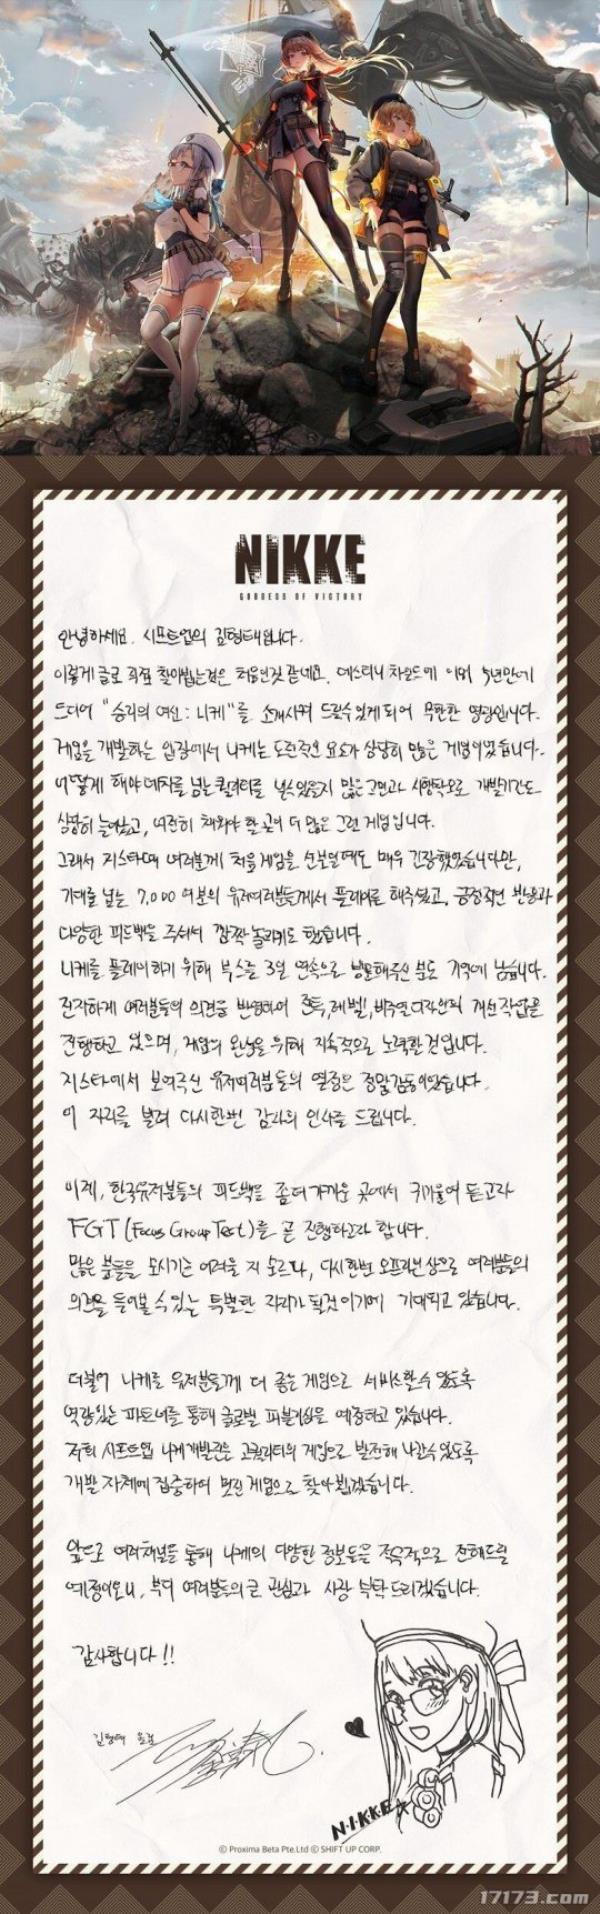 NIKKE
GODDESS OF VICTORY
안녕하세요. 시프트업의 김형태입니다.
이렇게 글로 직접 찾아뵙는것은 처음인것 같네요. 데스티니 차일드에 이어 5년만에
드디어 "승리의 여신: 니케"를 소개시켜 드릴수 있게 되어 무한한 영광입니다.
게임을 개발하는 입장에서 니케는 도전적인 요소가 상당히 많은 게임이었습니다.
어떻게 해야 데차를 넘는 퀄리티를 낼수 있을지 많은 고민과 시행착오로 개발기간도
상당히 늘어났고, 여전히 채워야 할 곳이 더 많은 그런 게임입니다.
그래서 지스타때 여러분께 처음 게임을 선보일때도 매우 긴장했었습니다만,
기대를 넘는 7,000 여분의 유저여러분들께서 플레이를 해주셨고, 긍정적인 반응과
다양한 피드백을 주셔서 깜짝 놀라기도 했습니다.
니케를 플레이하기 위해 부스를 3일 연속으로 방문해주신 분도 기억에 남습니다.
진지하게 여러분들의 의견을 반영하여 컨트, 레벨, 비주얼 디자인의 개선작업을
진행하고 있으며, 게임의 완성을 위해 지속적으로 노력할것입니다.
지스타에서 보여주신 유저여러분들의 열정은 정말 감동이었습니다.
이 자리를 빌려 다시한번 감사의 인사를 드립니다.
이제, 한국유저분들의 피드백을 좀더 가까운 곳에서 귀기울여 듣고자
FGT (Focus Group Test)를 곧 진행하고자 합니다.
많은 분들을 모시기는 어려울 지 모르나, 다시한번 오프라인상으로 여러분들의
의견을 들어볼 수 있는 특별한 자리가 될것이기에 기대되고 있습니다.
더불어 니케를 유저분들께 더 좋은 게임으로 서비스할수 있도록
역량있는 파트너를 통해 글로벌 퍼블리싱을 예정하고 있습니다.
저희 시프트업 니케개발진은 고퀄리티의 게임으로 발전해 나갈수 있도록
개발 자체에 집중하여 멋진 게임으로 찾아뵙겠습니다.
앞으로 여러채널을 통해 니케의 다양한 정보들을 적극적으로 전해드릴
예정이오니, 부디 여러분들의 큰 관심과 사랑 부탁드리겠습니다.
감사합니다!!
김형태 올림
N·I·K·K·E
© Proxima Beta Pte.Ltd © SHIFT UP CORP.
17173.com